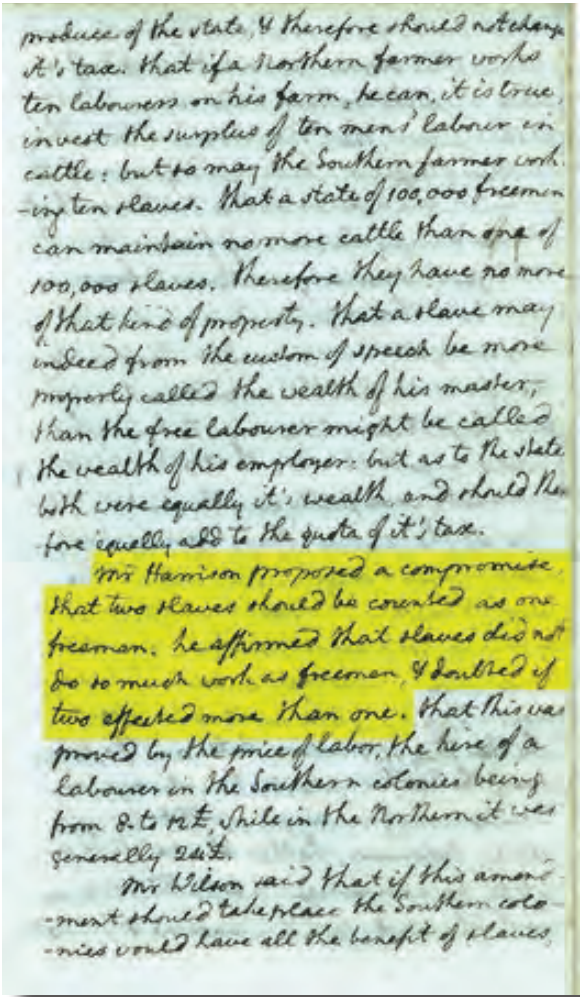 produce of the state, & therefore should not change
it's tax. that if a Northern farmer works
ten labourers on his farm, he can, it is true,
invest the surplus of ten mens' labour in
cattle: but so may the Southern farmer work-
-ing ten slaves. that a state of 100,000 freemen
can maintain no more cattle than one of
100,000 slaves. therefore they have no more
of that kind of property. that a slave may
indeed from the custom of speech be more
properly called the wealth of his master,
than the free labourer might be called
the wealth of his employer: but as to the state
both were equally it's wealth, and should there
-fore equally add to the quota of it's tax.
Mr Harrison proposed a compromise,
that two slaves should be counted as one
freeman. he affirmed that slaves did not
do so much work as freemen, & doubted if
two effected more than one. that this was
proved by the price of labor, the hire of a
labourer in the Southern colonies being
from 8. to 12£, while in the Northern it was
generally 24£.
Mr Wilson said that if this amend-
-ment should take place the Southern colo-
-nies would have all the benefit of slaves,